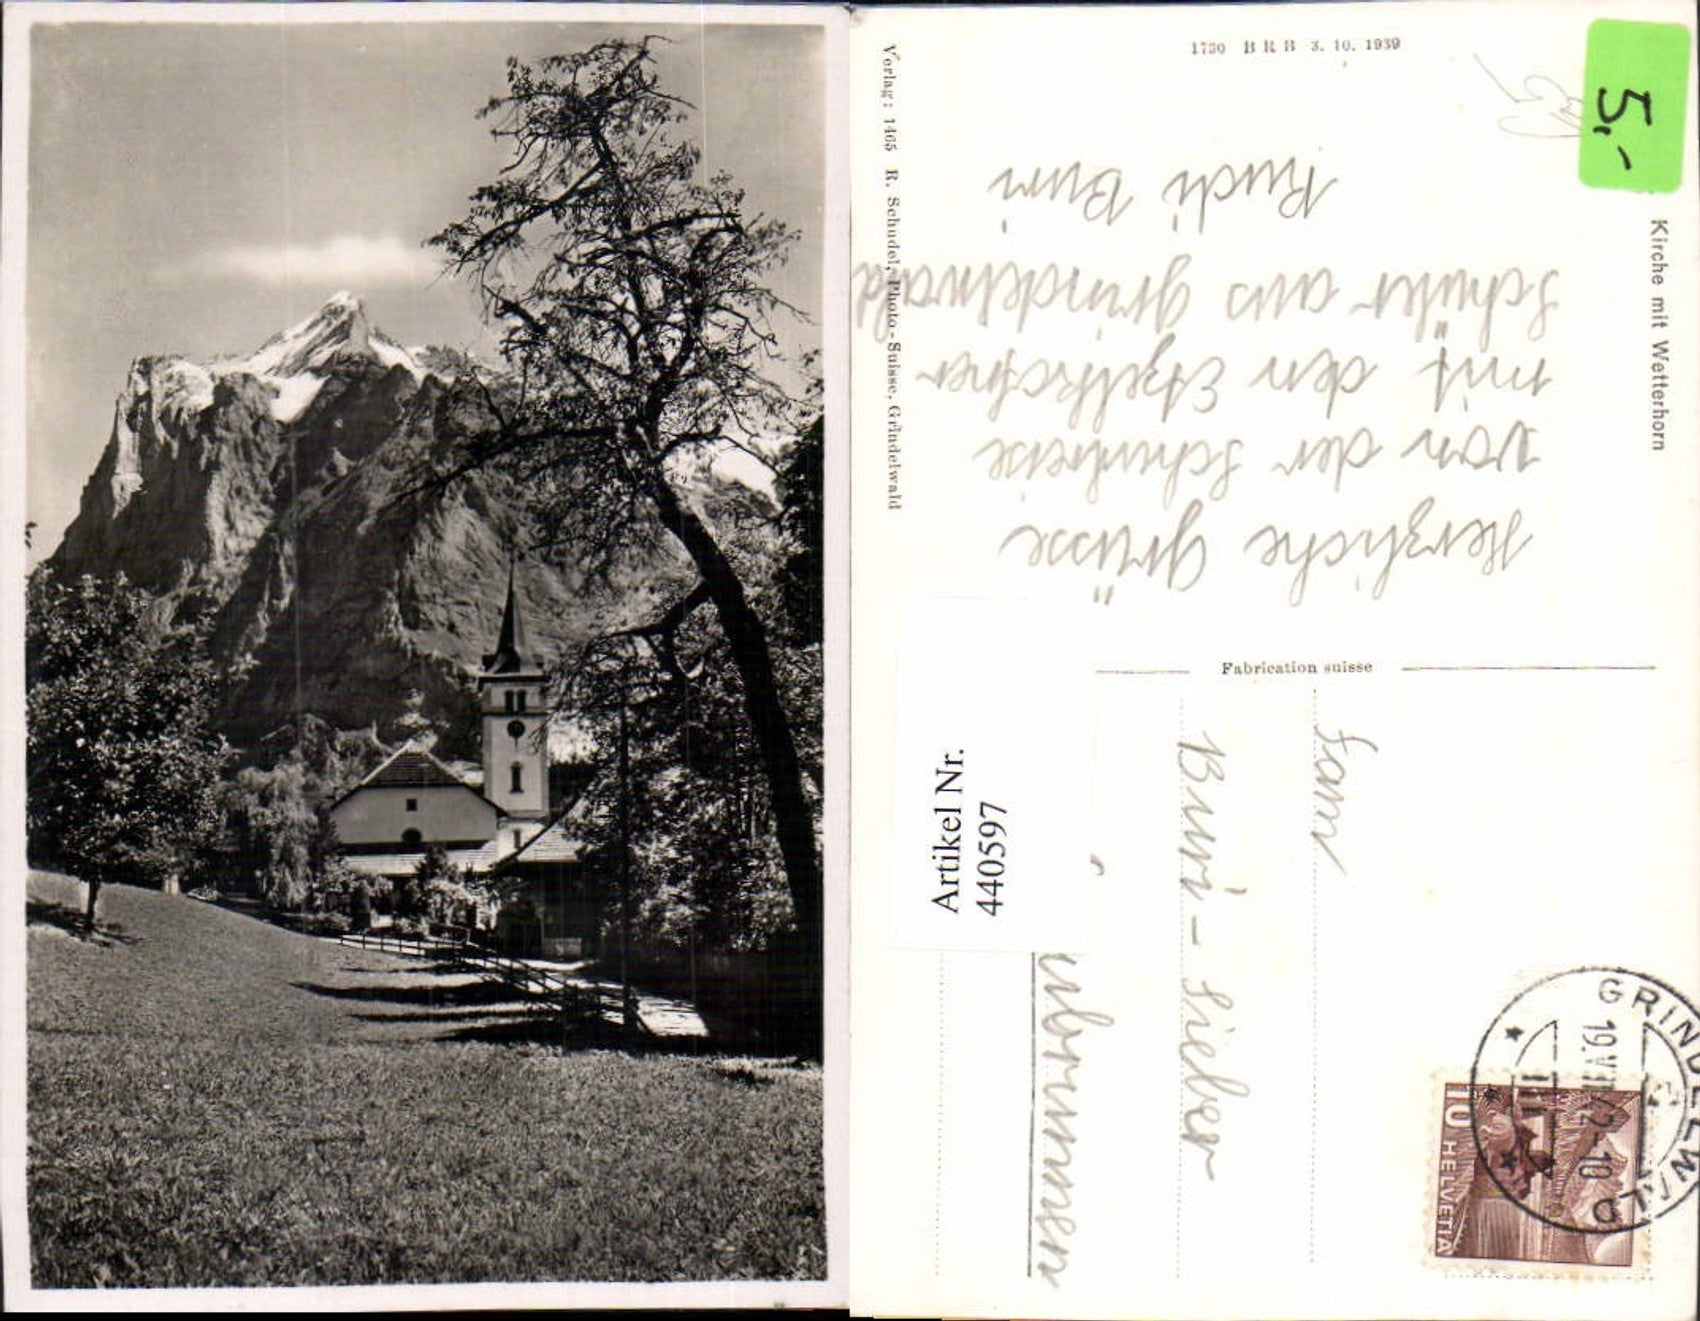 1730 B R B 3. 10. 1939
5.-
Kirche mit Wetterhorn
Verlag: 1465 R. Schudel, Photo-Suisse, Grindelwald
Herzliche Grüsse
von der Schulreise
mit den Etzelkofner
Schüler aus Grindelwald
Rudi Buri
Fabrication suisse
Fam
Buri-Sieber
Artikel Nr.
440597
GRINDELWALD
10 HELVETIA